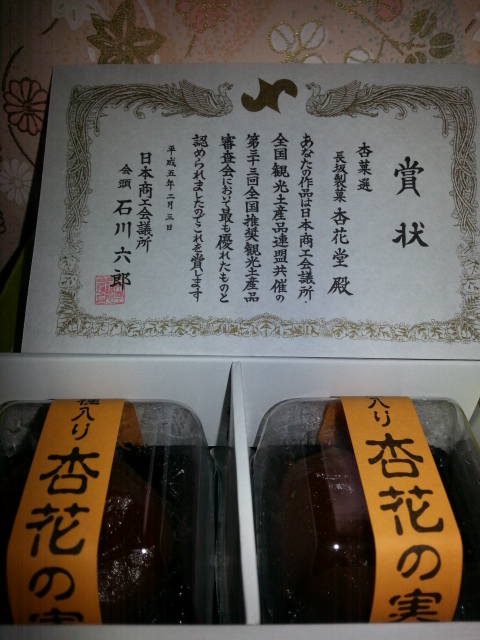 賞状
杏菓選
長坂製菓 杏花堂 殿
あなたの作品は日本商工会議所・
全国観光土産品連盟共催の
第三十三回全国推奨観光土産品
審査会において最も優れたものと
認められましたのでこれを賞します
平成五年二月三日
日本商工会議所
会頭 石川六郎
種入り 杏花の実
入り 杏花の実